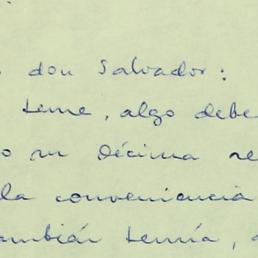 don Salvador:
teme, algo debe
o su Décima re
la conveniencia
ambién temía,